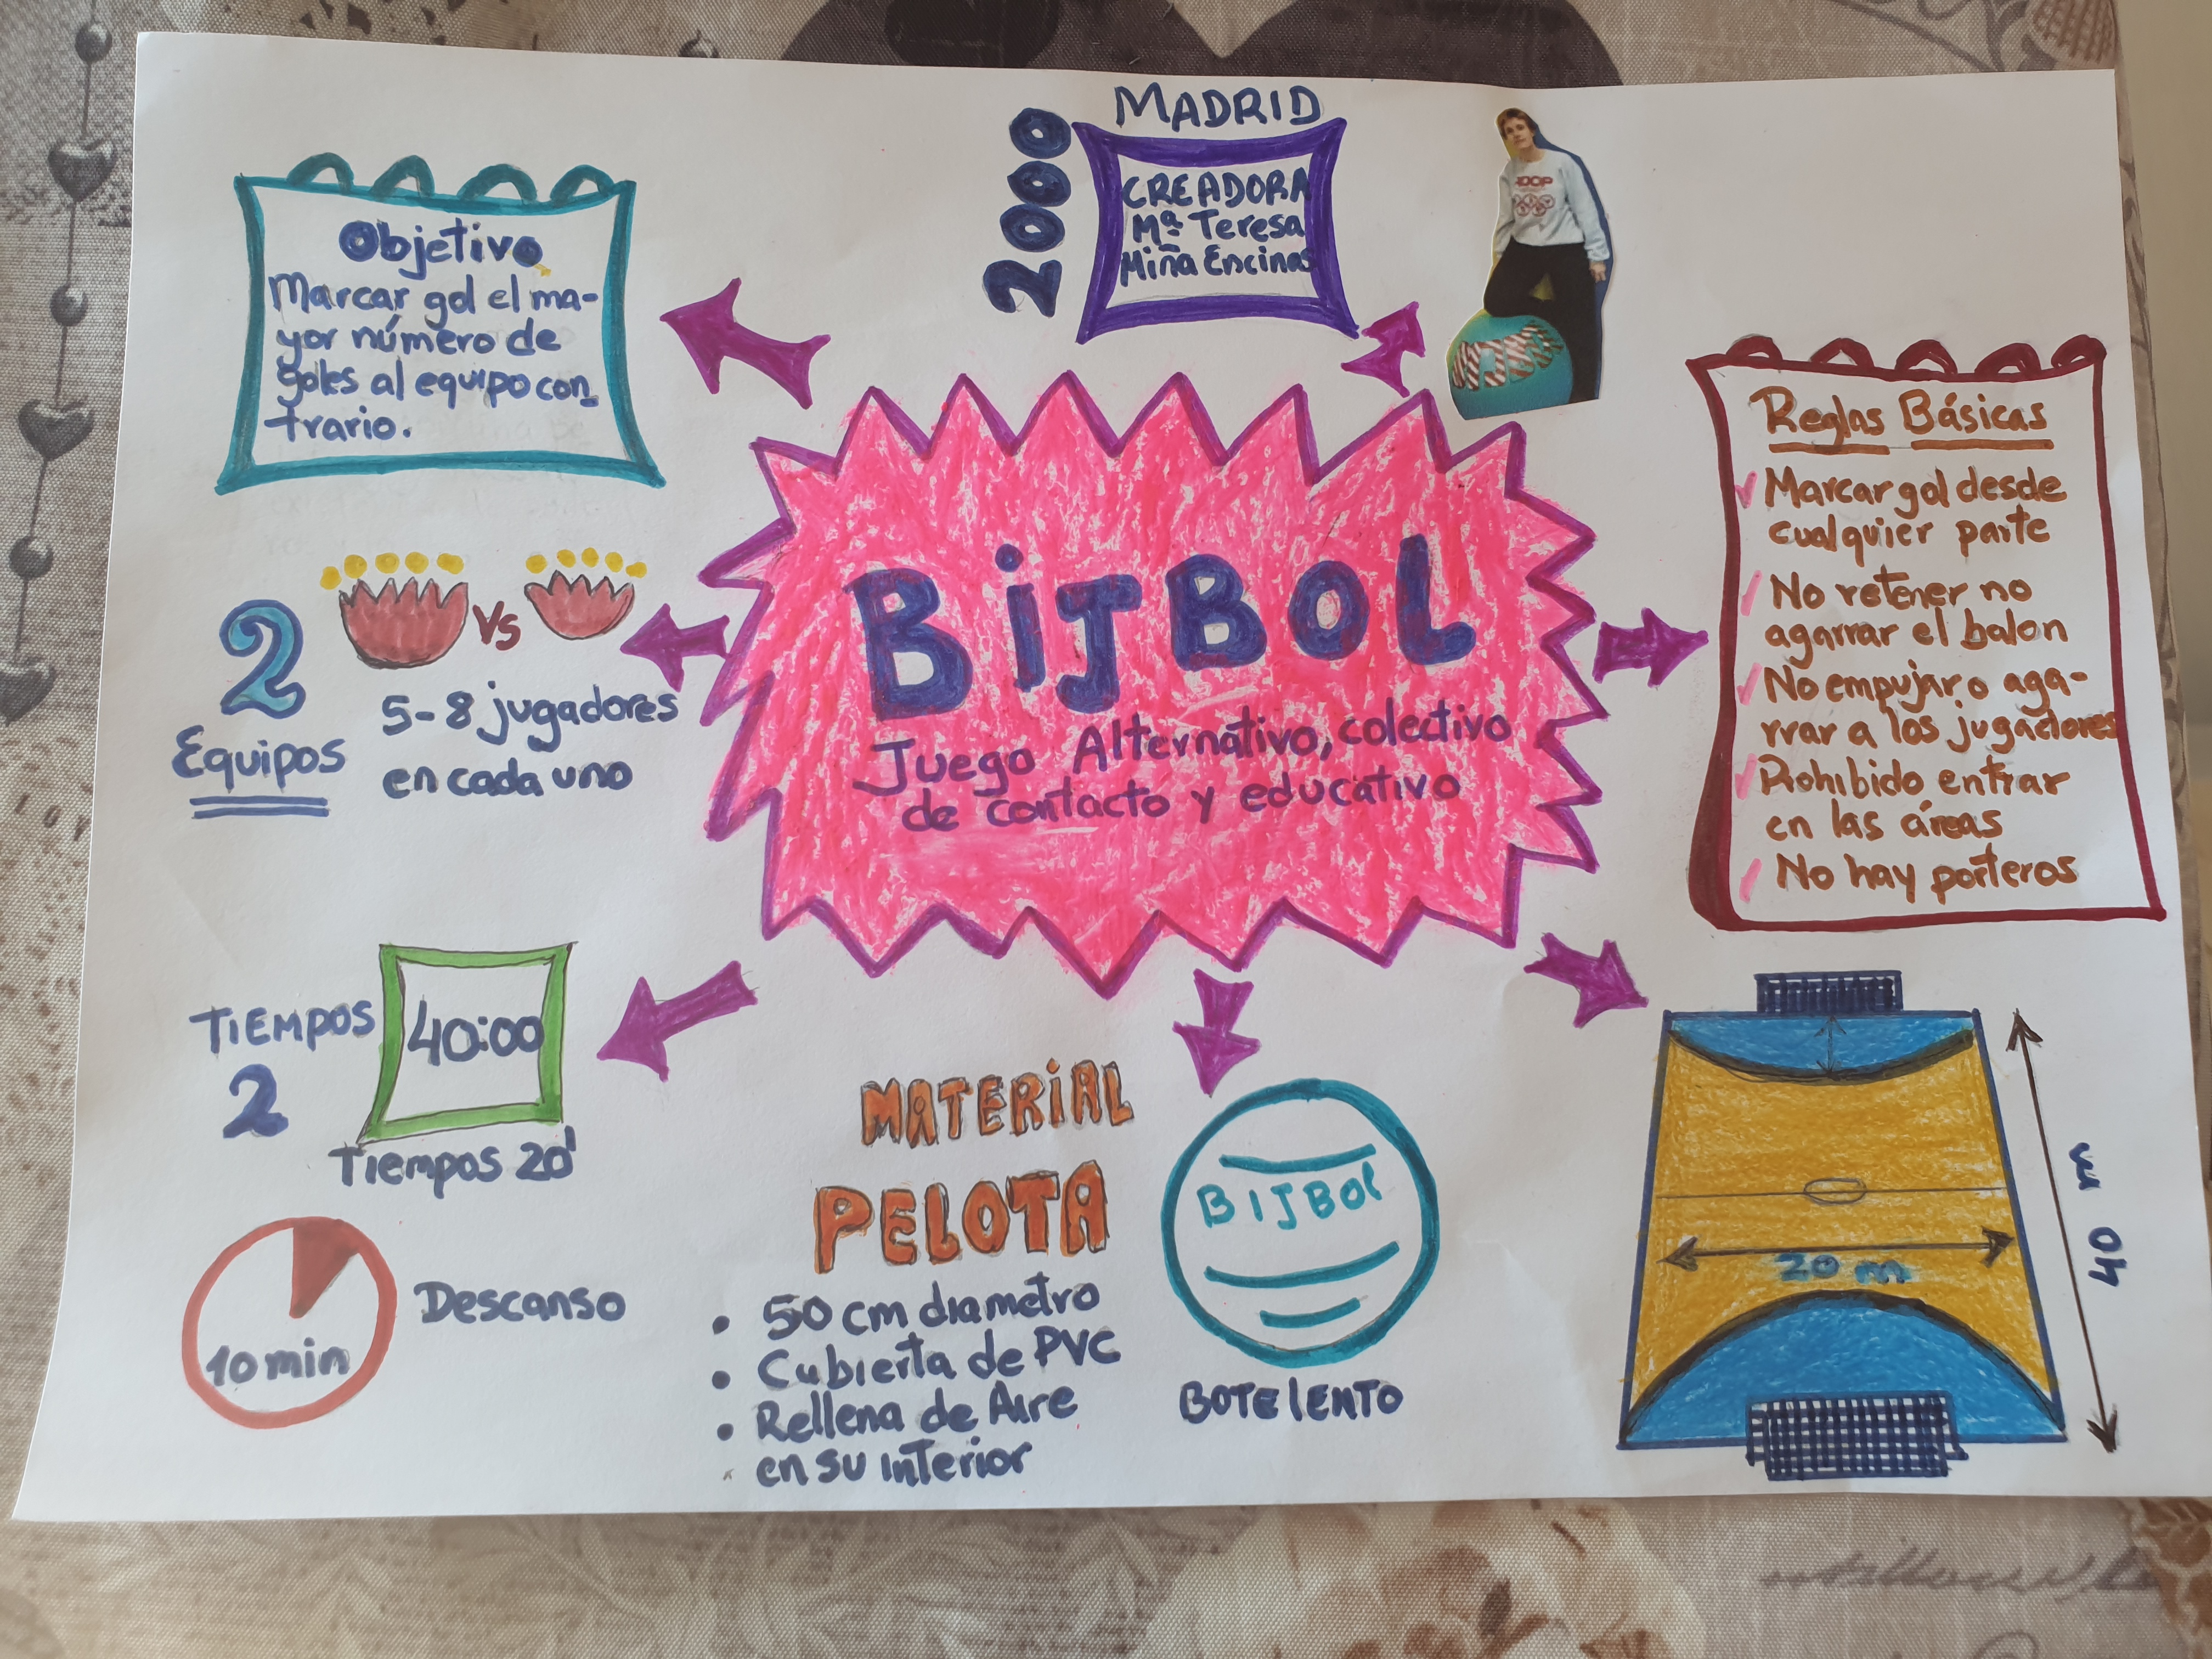 MADRID
2000
CREADORA
Mª Teresa
Miña Encinas
Objetivo
Marcar gol el ma-
yor número de
goles al equipo con-
trario.
2
Equipos
Vs
5-8 jugadores
en cada uno
BIJBOL
Juego Alternativo, colectivo
de contacto y educativo
Reglas Básicas
Marcar gol desde
cualquier parte
No retener no
agarrar el balon
No empujar o aga-
rrar a los jugadores
Prohibido entrar
en las áreas
No hay porteros
TIEMPOS
2
40:00
Tiempos 20'
10 min
Descanso
MATERIAL
PELOTA
• 50 cm diametro
• Cubierta de PVC
• Rellena de Aire
en su interior
BIJBOL
BOTE lENTO
20 m
40 m